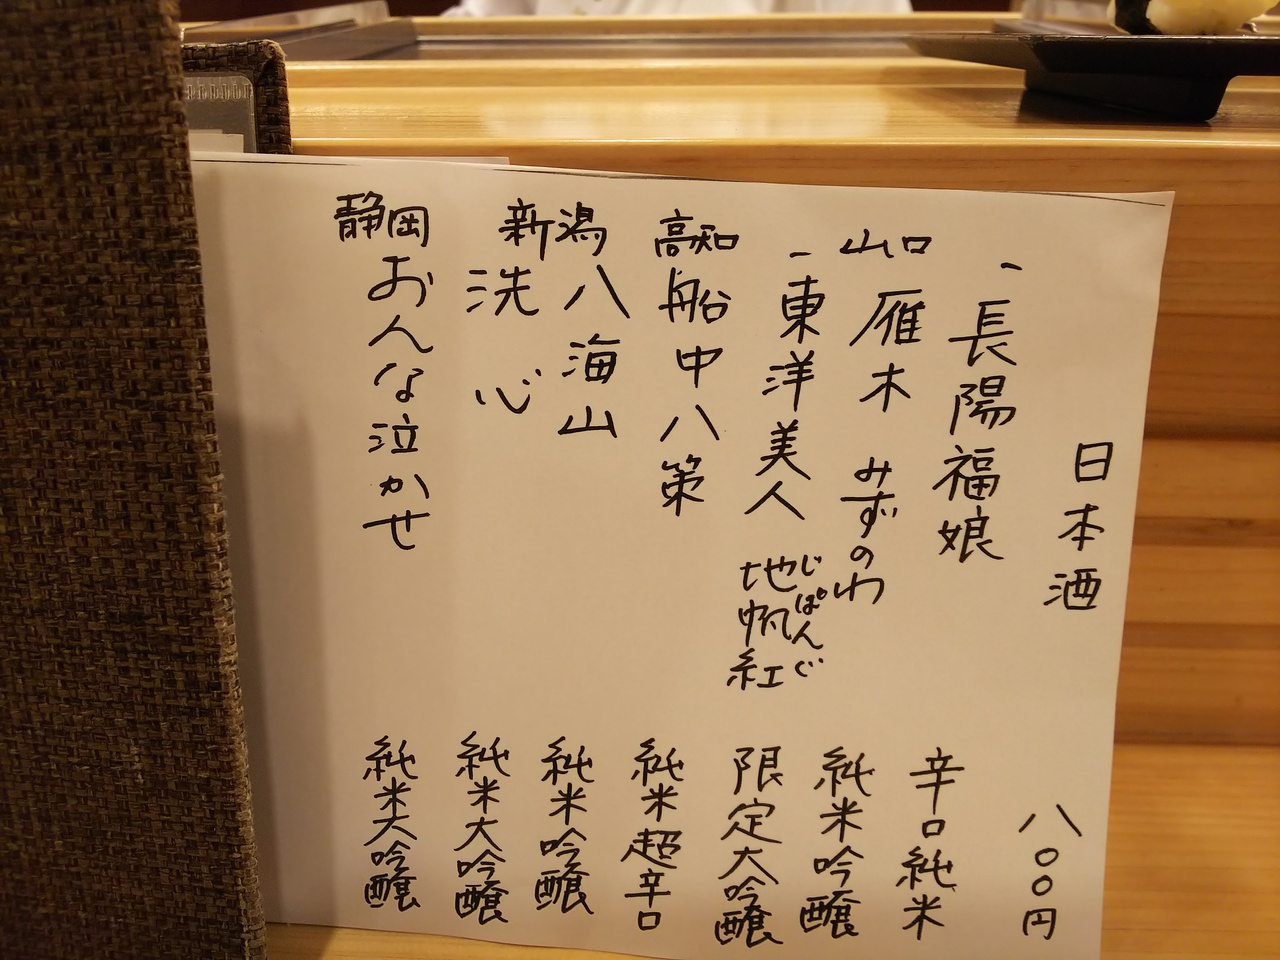 日本酒 八〇〇円
一 長陽福娘 辛口純米
山口 雁木 みずのわ 純米吟醸
一 東洋美人 地帆紅 じぱんぐ 限定大吟醸
高知 船中八策 純米超辛口
新潟 八海山 純米吟醸
洗心 純米大吟醸
静岡 おんな泣かせ 純米大吟醸